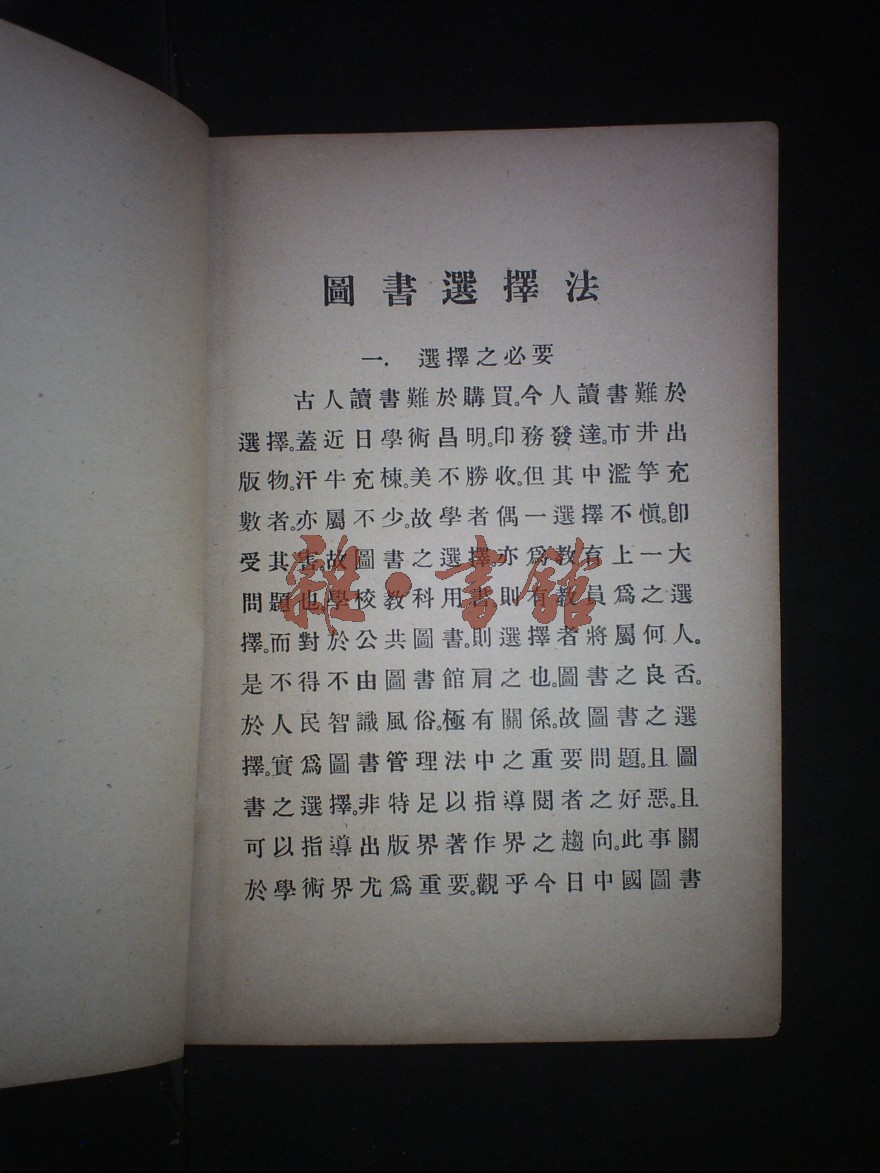 圖書選擇法
一. 選擇之必要
古人讀書難於購買。今人讀書難於
選擇。蓋近日學術昌明。印務發達。市井出
版物。汗牛充棟。美不勝收。但其中濫竽充
數者。亦屬不少。故學者偶一選擇不愼。卽
受其害。故圖書之選擇。亦爲教育上一大
問題也。學校教科用書。則有教員爲之選
擇。而對於公共圖書。則選擇者將屬何人。
是不得不由圖書館肩之也。圖書之良否。
於人民智識風俗。極有關係。故圖書之選
擇。實爲圖書管理法中之重要問題。且圖
書之選擇。非特足以指導閱者之好惡。且
可以指導出版界著作界之趨向。此事關
於學術界尤爲重要。觀乎今日中國圖書
雜·書館